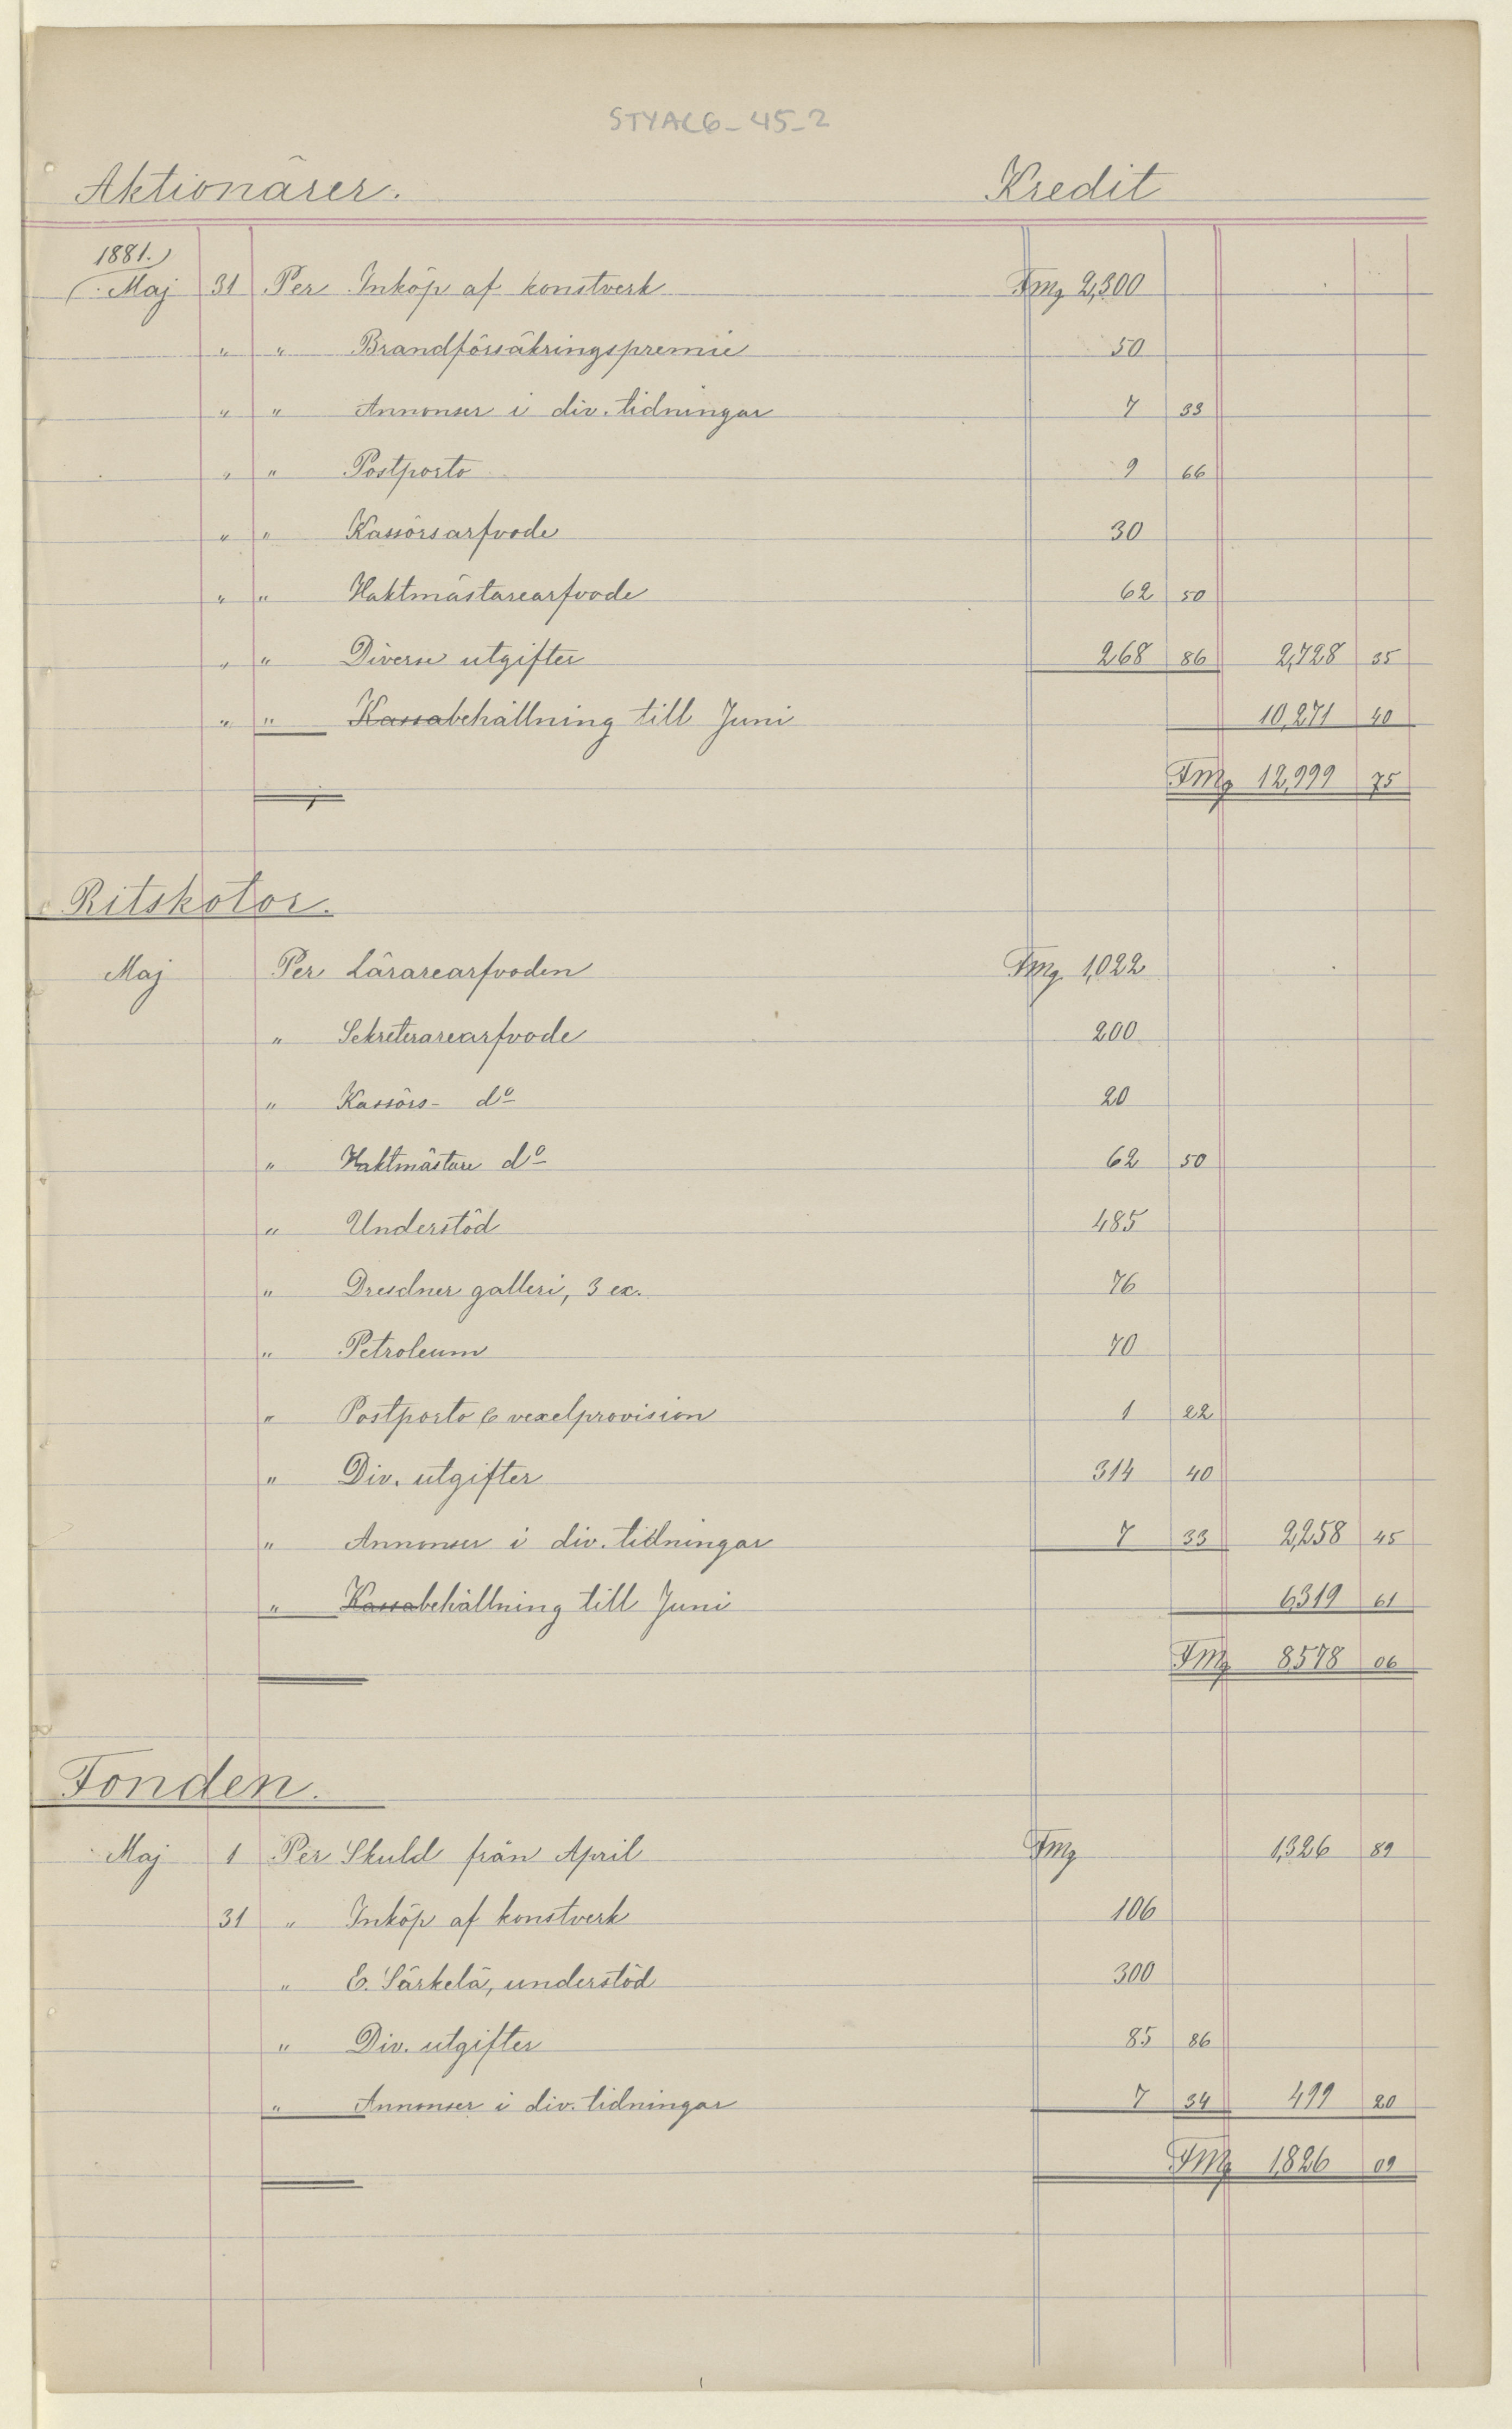 STYAC6_45_2
Aktionärer. Kredit
1881.
Maj 31 Per Inköp af konstverk Fmg 2,300
" " Brandförsäkringspremie 50
" " Annonser i div. tidningar 7 33
" " Postporto 9 66
" " Kassörsarfvode 30
" " Vaktmästarearfvode 62 50
" " Diverse utgifter 268 86 2,728 35
" " Kassabehållning till Juni 10,271 40
Fmg 12,999 75
Ritskolor.
Maj Per Lärarearfvoden Fmg 1,022
" Sekreterarearfvode 200
" Kassörs- do 20
" Vaktmästare do 62 50
" Understöd 485
" Dresdner galleri, 3 ex. 76
" Petroleum 70
" Postporto & vexelprovision 1 22
" Div. utgifter 314 40
" Annonser i div. tidningar 7 33 2,258 45
" Kassabehållning till Juni 6,319 61
Fmg 8578 06
Fonden.
Maj 1 Per Skuld från April Fmg 1,326 89
31 " Inköp af konstverk 106
" E. Särkelä, understöd 300
" Div. utgifter 85 86
" Annonser i div. tidningar 7 34 499 20
Fmg 1,826 09